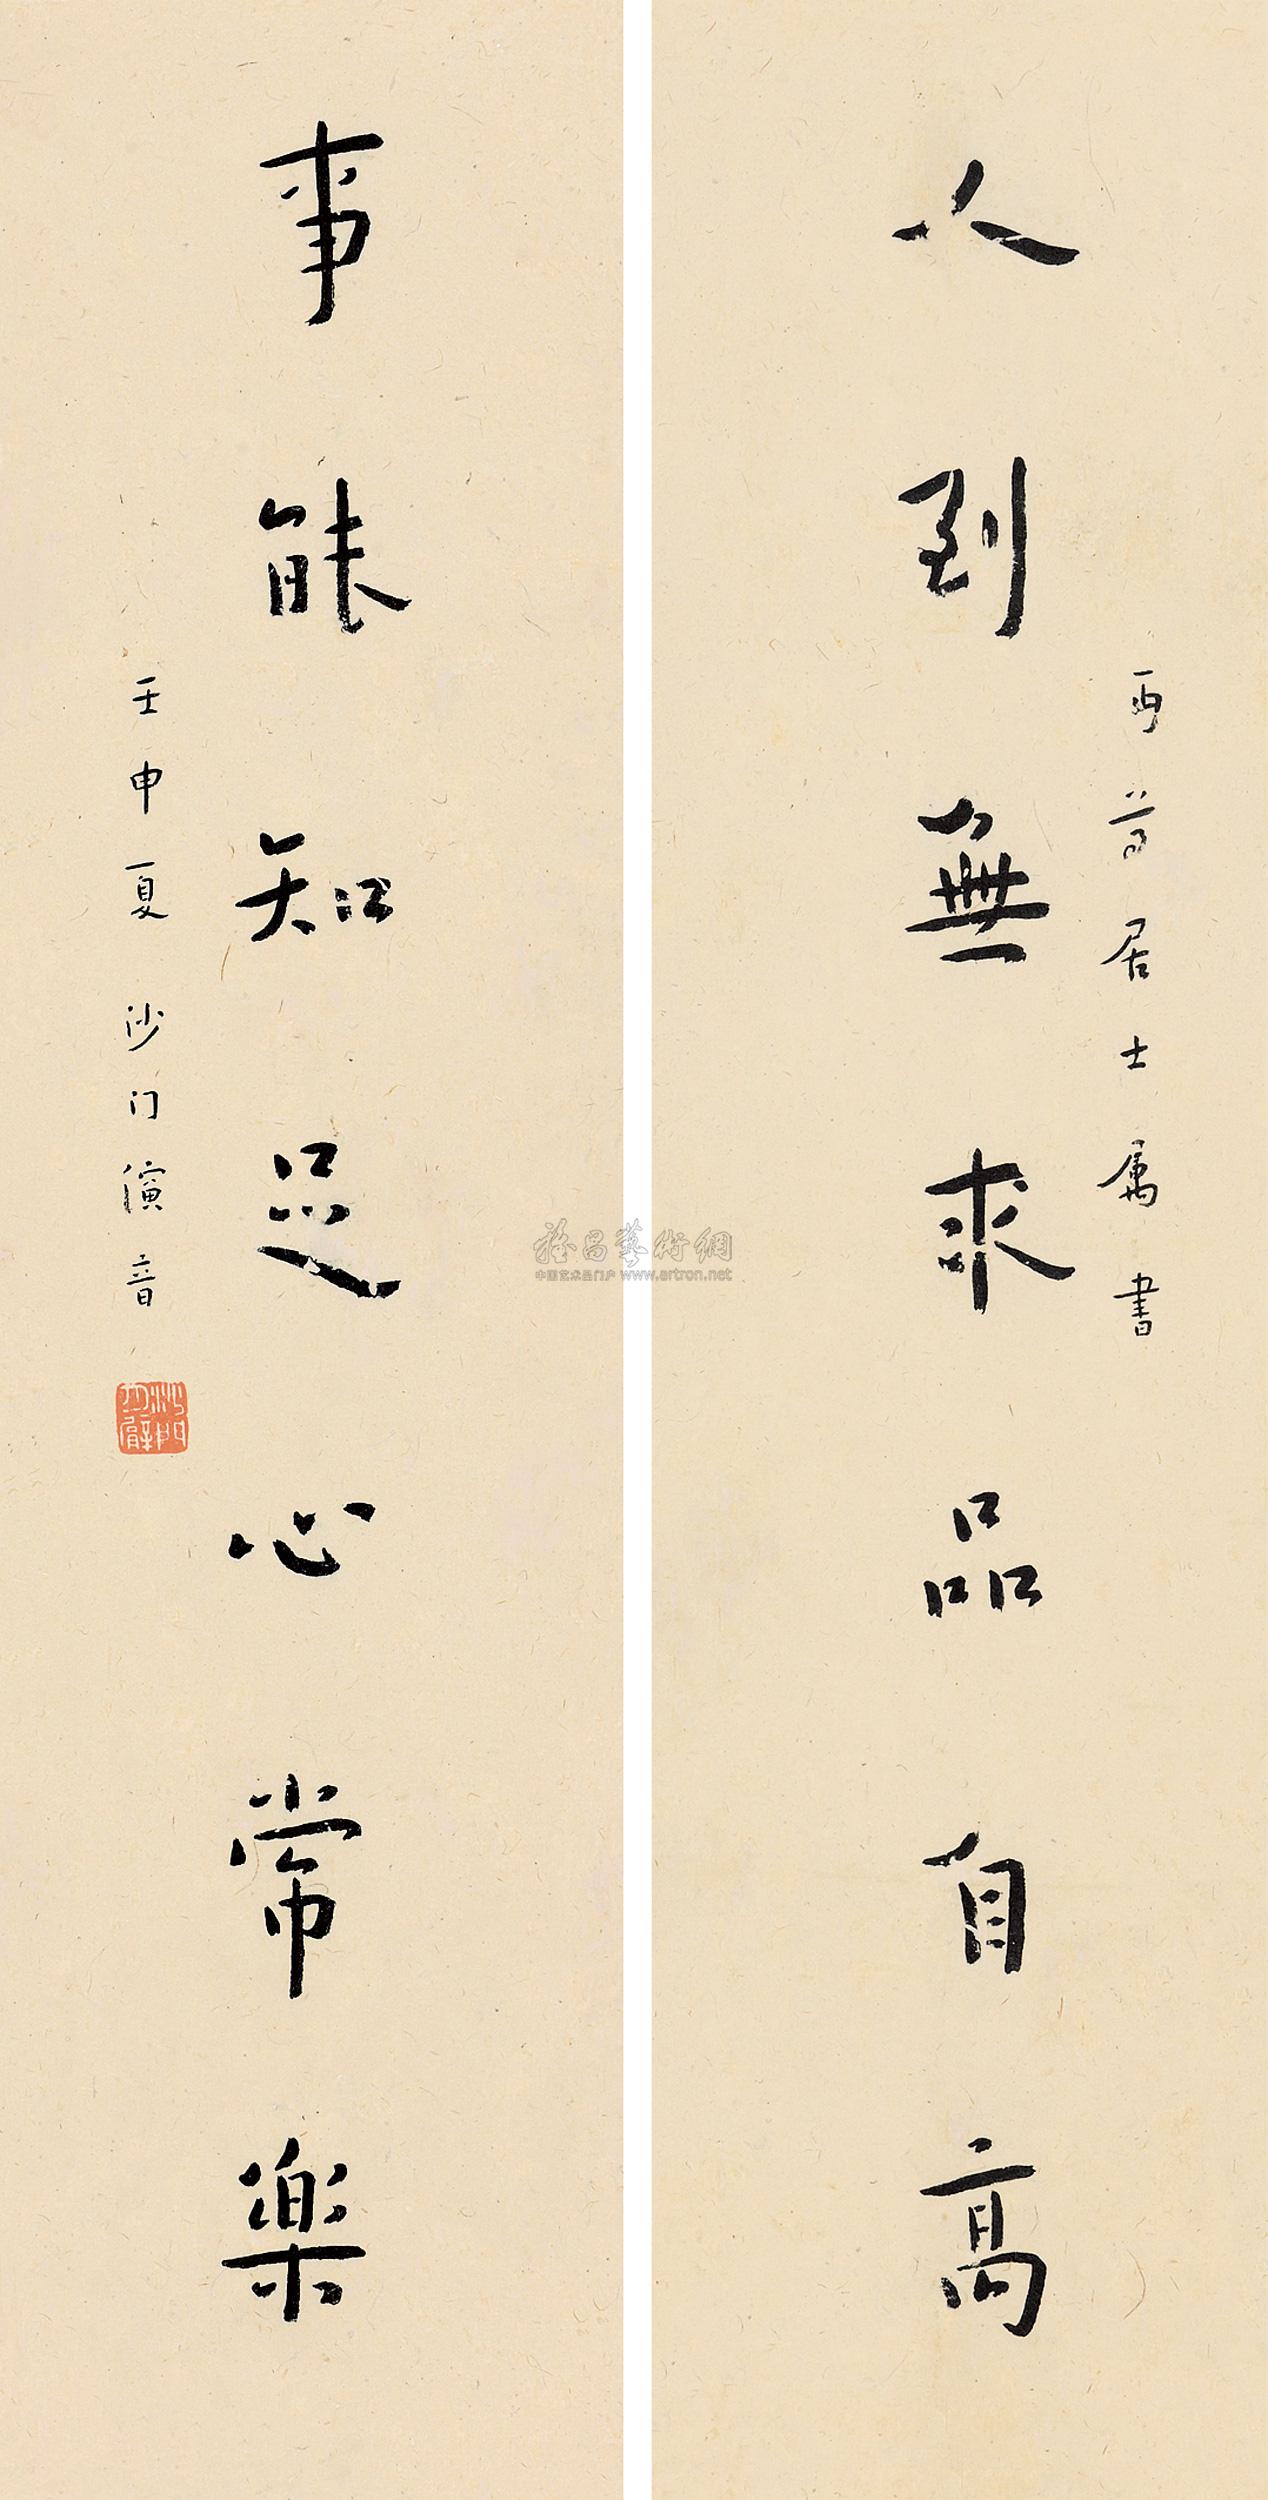 丏尊居士属書
人到無求品自高
事能知足心常樂
壬申夏 沙门演音
沙門月臂
雅昌藝術網
中国艺术品门户 www.artron.net